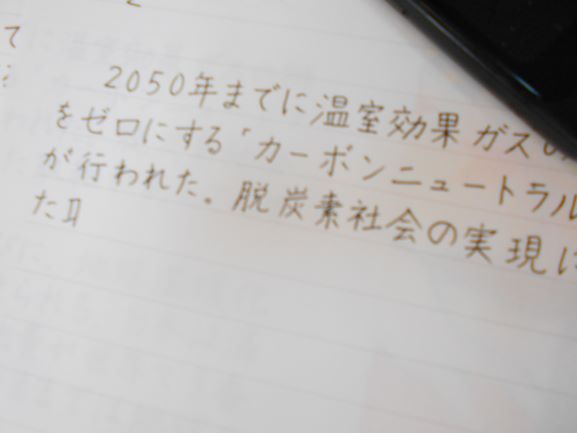 て
2050年までに温室効果ガスの
をゼロにする「カーボンニュートラル
が行われた。脱炭素社会の実現に
た